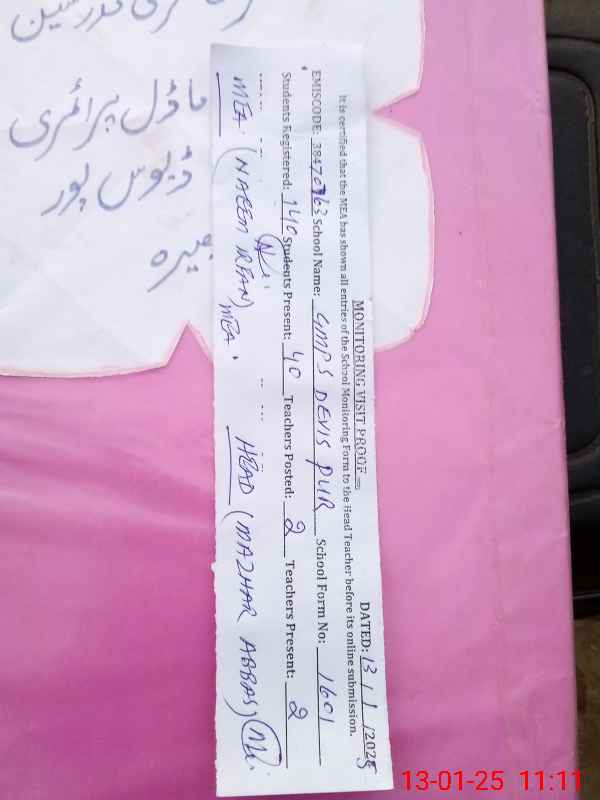 ماڈل پرائمری
ڈیوس پور
MONITORING VISIT PROOF
DATED: 13/1/2025
It is certified that the MEA has shown all entries of the School Monitoring Form to the Head Teacher before its online submission.
EMISCODE: 38470763 School Name: GMPS DEVIS PUR School Form No: 1601
Students Registered: 140 Students Present: 40 Teachers Posted: 2 Teachers Present: 2
MEA (NAEEM IRFAN) MEA. HEAD (MAZHAR ABBAS)
13-01-25 11:11